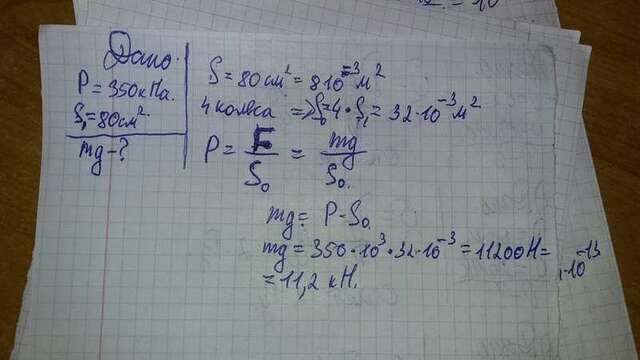 Дано.
P = 350 кПа.
S₁ = 80 см².
mg - ?
S = 80 см² = 8·10⁻³ м²
4 колеса => S₀ = 4 · S₁ = 32·10⁻³ м²
P = F / S₀ = mg / S₀.
mg = P · S₀.
mg = 350·10³·32·10⁻³ = 11200 Н =
= 11,2 кН.
·10⁻¹³